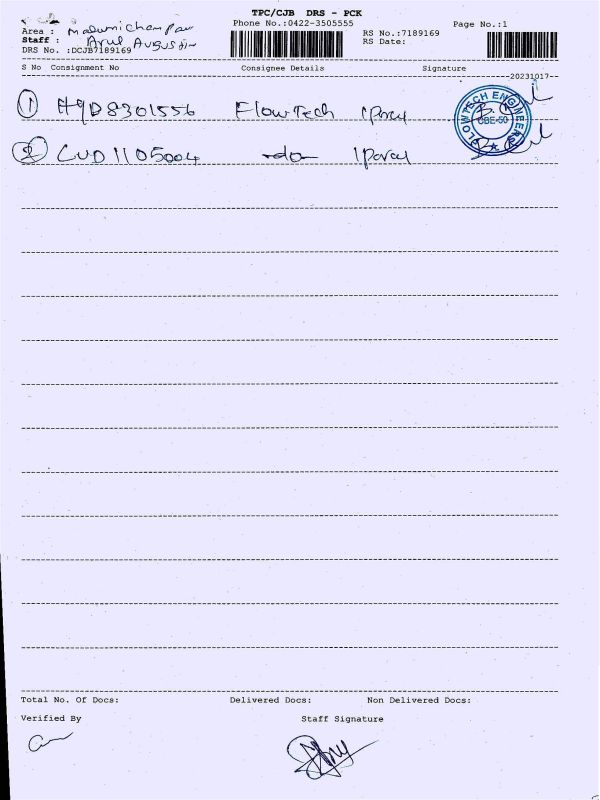 TPC/CJB DRS - PCK
Phone No.:0422-3505555
Page No.:1
Area :
Staff : Arul Augustin
DRS No. :DCJB7189169
RS No.:7189169
RS Date:
S No Consignment No Consignee Details Signature
20231017
1 HYD8301556 FlowTech 1 Parcel
2 CUD1105004 -do- 1 Parcel
FLOWTECH ENGINEERS
CBE-50
Total No. Of Docs: Delivered Docs: Non Delivered Docs:
Verified By Staff Signature